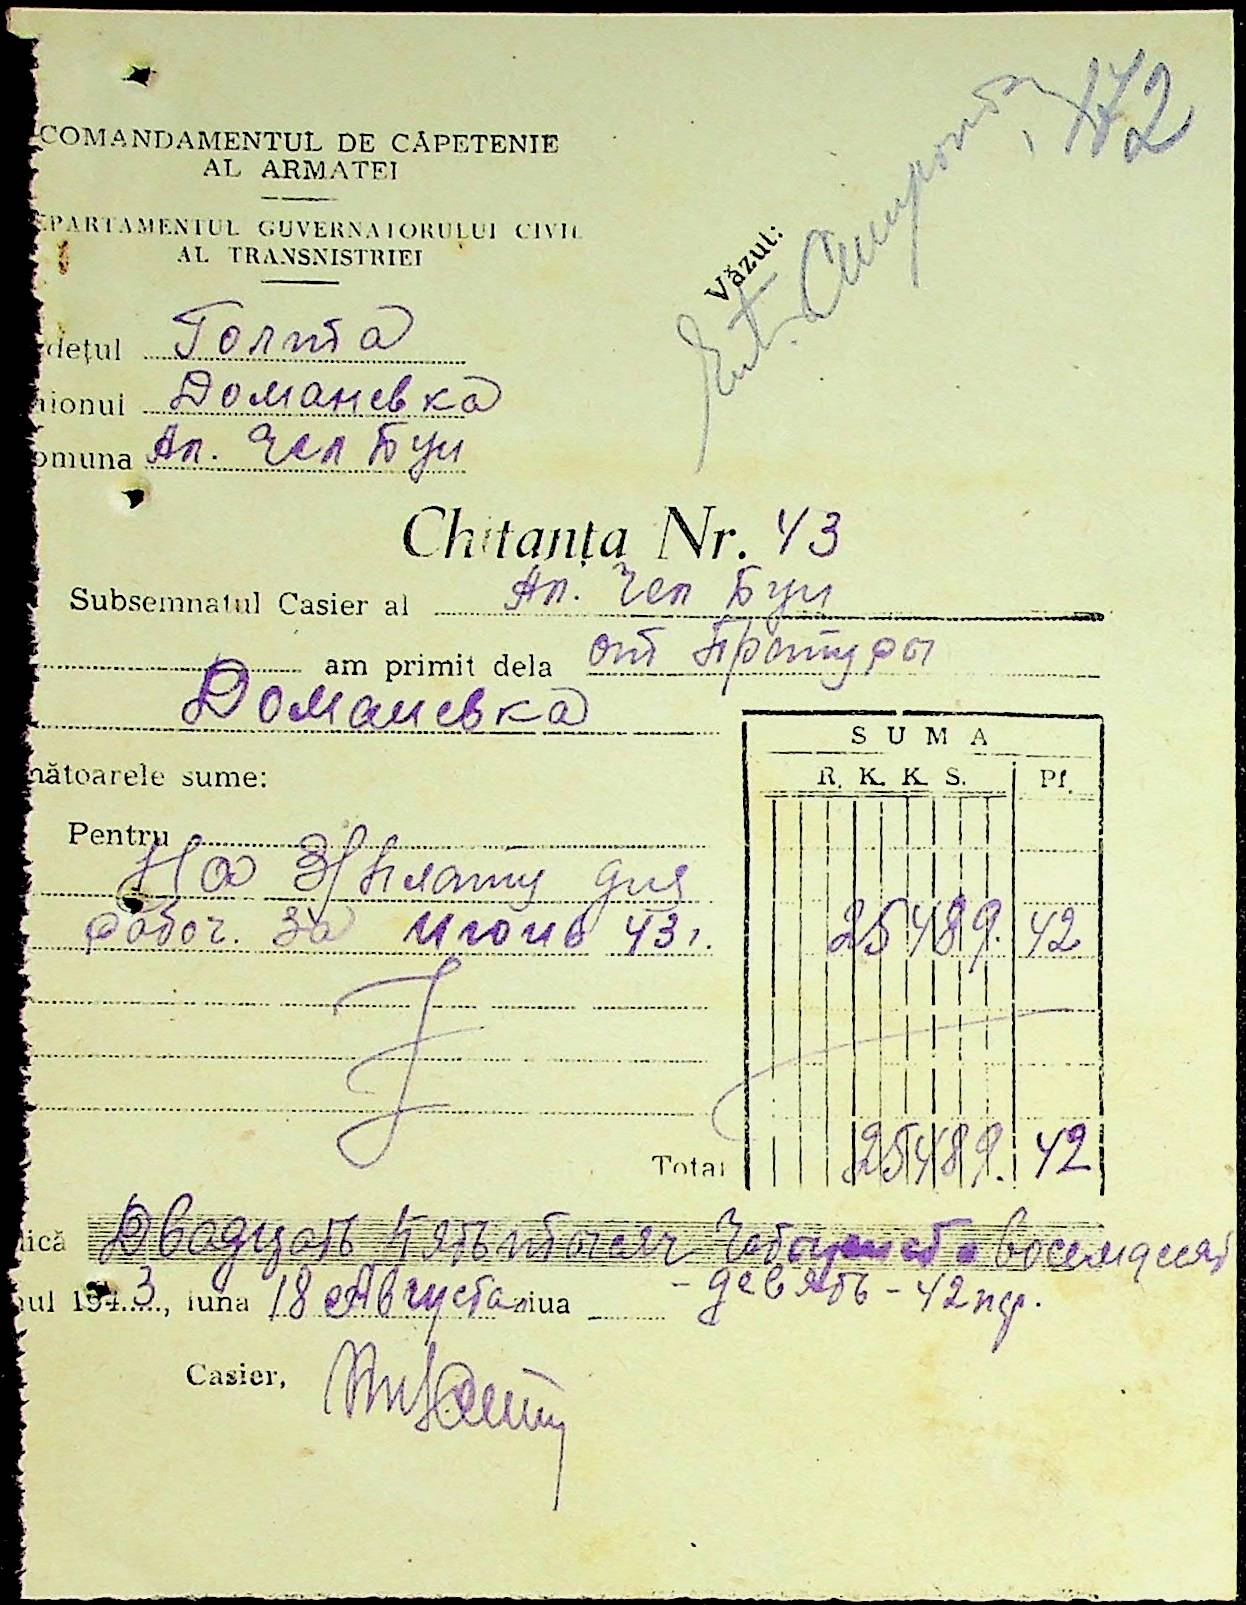 COMANDAMENTUL DE CĂPETENIE
AL ARMATEI
EPARTAMENTUL GUVERNATORULUI CIVIL
AL TRANSNISTRIEI
172
Văzut:
dețul Голта
ionul Доманевка
omuna Ап. Чел Буи
Chitanța Nr. 43
Subsemnatul Casier al Ап. Чел Буи
am primit dela от Претуры
Доманевка
mătoarele sume:
SUMA
R. K. K. S. Pf.
Pentru
На З/плату для
рабоч. за июнь 43 г. 25489. 42
Total 25489. 42
ică Двадцать пять тысяч Четыреста восемдесят
ul 194.3, luna 18 Августа ziua - девять - 42 пф.
Casier,